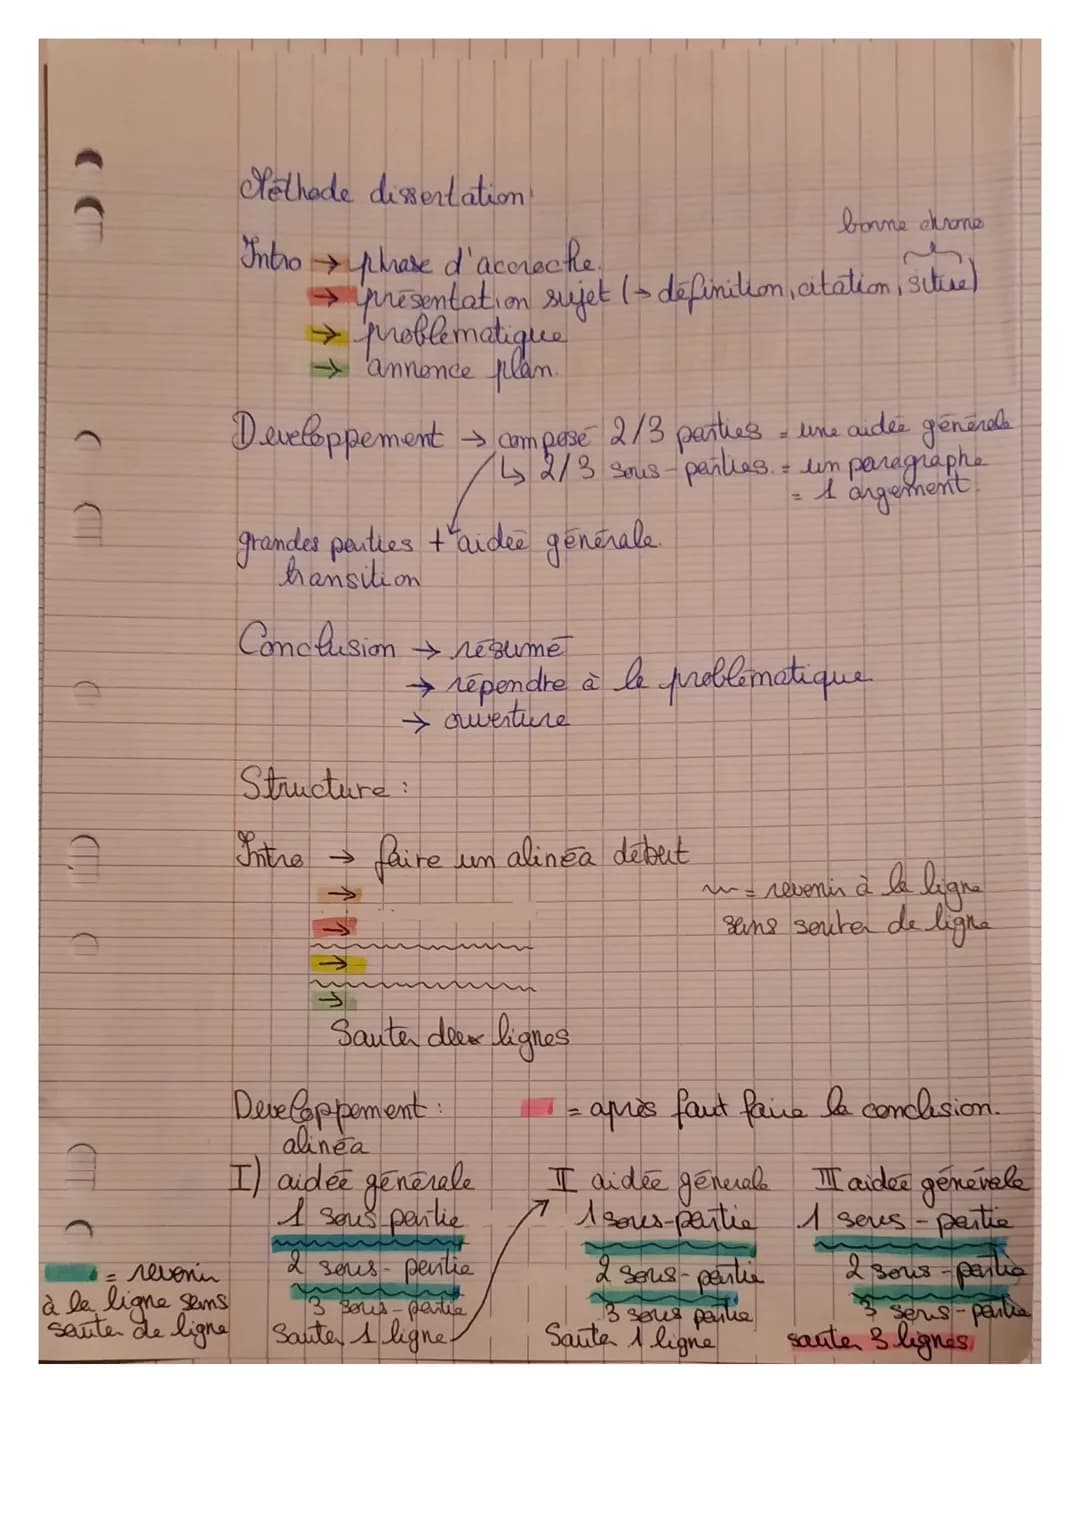 Méthode dissertation:
bonne chrono
Intro → phrase d'accroche.
→ présentation sujet (→ définition, citation, situe)
→ problématique
→ annonce plan
Developpement → composé 2/3 parties = une aidée générale
↳ 2/3 sous-parties. = un paragraphe
= 1 argement.
grandes parties + aidée générale.
transition
Conclusion → résumé
→ répondre à la problématique
→ ouverture
Structure :
Intro → faire un alinéa début
→
→
→
→
~ = revenir à la ligne
sans sauter de ligne
Sauter deux lignes
Developpement :
= après faut faire la conclusion.
alinéa
I) aidée générale
1 sous partie
2 sous-partie
3 sous-partie
Sauter 1 ligne
II aidée générale
1 sous-partie
2 sous-partie
3 sous partie
Sauter 1 ligne
III aidée générale
1 sous-partie
2 sous-partie
3 sous-partie
sauter 3 lignes.
= revenir
à la ligne sans
sauter de ligne